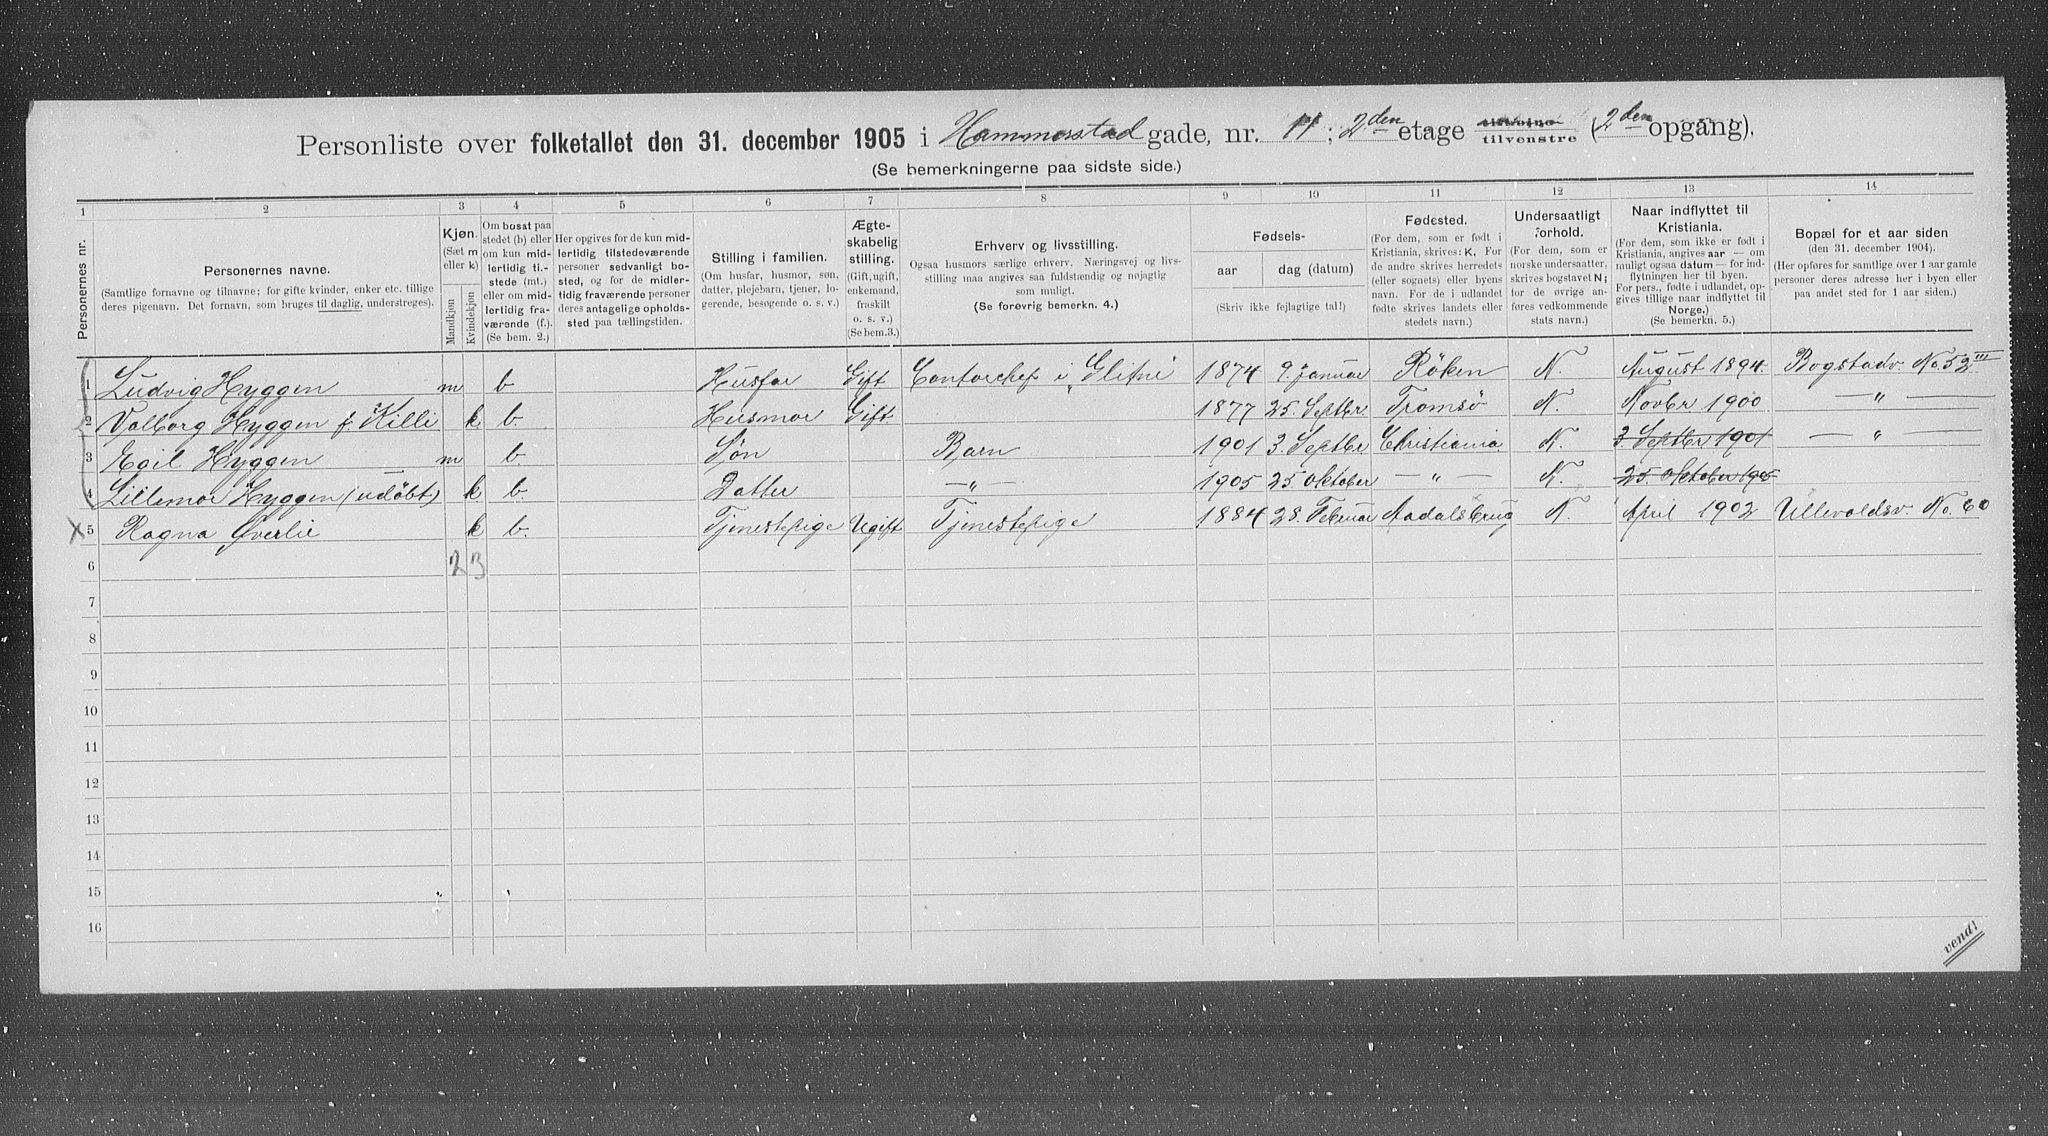 Personliste over folketallet den 31. december 1905 i Hammerstad gade, nr. 11 ; 2den etage tilhøire tilvenstre (2den opgang).
(Se bemerkningerne paa sidste side.)
1 2 3 4 5 6 7 8 9 10 11 12 13 14
Personernes nr.
Personernes navne.
(Samtlige fornavne og tilnavne; for gifte kvinder, enker etc. tillige
deres pigenavn. Det fornavn, som bruges til daglig, understreges).
Kjøn.
(Sæt m
eller k)
Mandkjøn
Kvindekjøn
Om bosat paa
stedet (b) eller
om kun mid-
lertidig til-
stede (mt.)
eller om mid-
lertidig fra-
værende (f.).
(Se bem. 2.)
Her opgives for de kun mid-
lertidig tilstedeværende
personer sedvanligt bo-
sted, og for de midler-
tidig fraværende personer
deres antagelige opholds-
sted paa tællingstiden.
Stilling i familien.
(Om husfar, husmor, søn,
datter, plejebarn, tjener, lo-
gerende, besøgende o. s. v.)
Ægte-
skabelig
stilling.
(Gift, ugift,
enkemand,
fraskilt
o. s. v.)
(Se bem.3.)
Erhverv og livsstilling.
Ogsaa husmors særlige erhverv. Næringsvej og livs-
stilling maa angives saa fuldstændig og nøjagtig
som muligt.
(Se forøvrig bemerkn. 4.)
Fødsels-
aar
dag (datum)
(Skriv ikke fejlagtige tal!)
Fødested.
(For dem, som er født i
Kristiania, skrives: K. For
de andre skrives herredets
(eller sognets) eller byens
navn. For de i udlandet
fødte skrives landets eller
stedets navn.)
Undersaatligt
forhold.
(For dem, som er
norske undersaatter,
skrives bogstavet N;
for de øvrige an-
føres vedkommende
stats navn.)
Naar indflyttet til
Kristiania.
(For dem, som ikke er født i
Kristiania, angives aar — om
muligt ogsaa datum — for ind-
flytningen her til byen.
For pers., fødte i udlandet, op-
gives tillige naar indflyttet til
Norge.)
(Se bemerkn. 5.)
Bopæl for et aar siden
(den 31. december 1904).
(Her opføres for samtlige over 1 aar gamle
personer deres adresse her i byen eller
paa andet sted for 1 aar siden.)
1 Ludvig Hyggen m b Husfar Gift Contorchef i "Glitne" 1874 9. Januar Röken N. August 1894. Bogstadv. No. 52 III
2 Valborg Hyggen f Killi k b. Husmor Gift 1877 25. Septbr Tromsø N. Novbr 1900 — " —
3 Egil Hyggen m b. Søn Barn 1901 3. Septbr Christiania N. 3 Septbr 1901 — " —
4 Lillemor Hyggen (udöbt) k b. Datter — " — 1905 25. Oktober — " — N. 25. Oktober 1905
X 5 Ragna Øverlie k b. Tjenestepige Ugift Tjenestepige 1884 28. Februar Aadalsbrug N April 1902 Ullevoldsv. No. 60
6 2 3
7
8
9
10
11
12
13
14
15
16
vend!